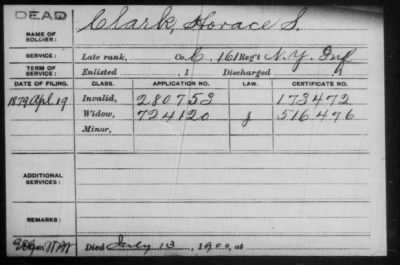 DEAD
NAME OF SOLDIER: Clark, Horace S.
SERVICE: Late rank, Co. C, 161 Reg't N.Y. Inf
TERM OF SERVICE: Enlisted , 1 Discharged , 1
DATE OF FILING. CLASS. APPLICATION NO. LAW. CERTIFICATE NO.
1879 Apl. 19 Invalid, 280753 173472
Widow, 724120 516476
Minor,
ADDITIONAL SERVICES:
REMARKS:
Died July 13, 1900, at